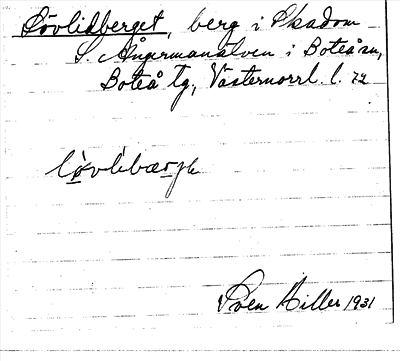 Lövlidberget, berg i Skadom
S. Ångermanälven i Boteå sn,
Boteå tg, Västernorrl. l. 72
Sven Hiller 1931